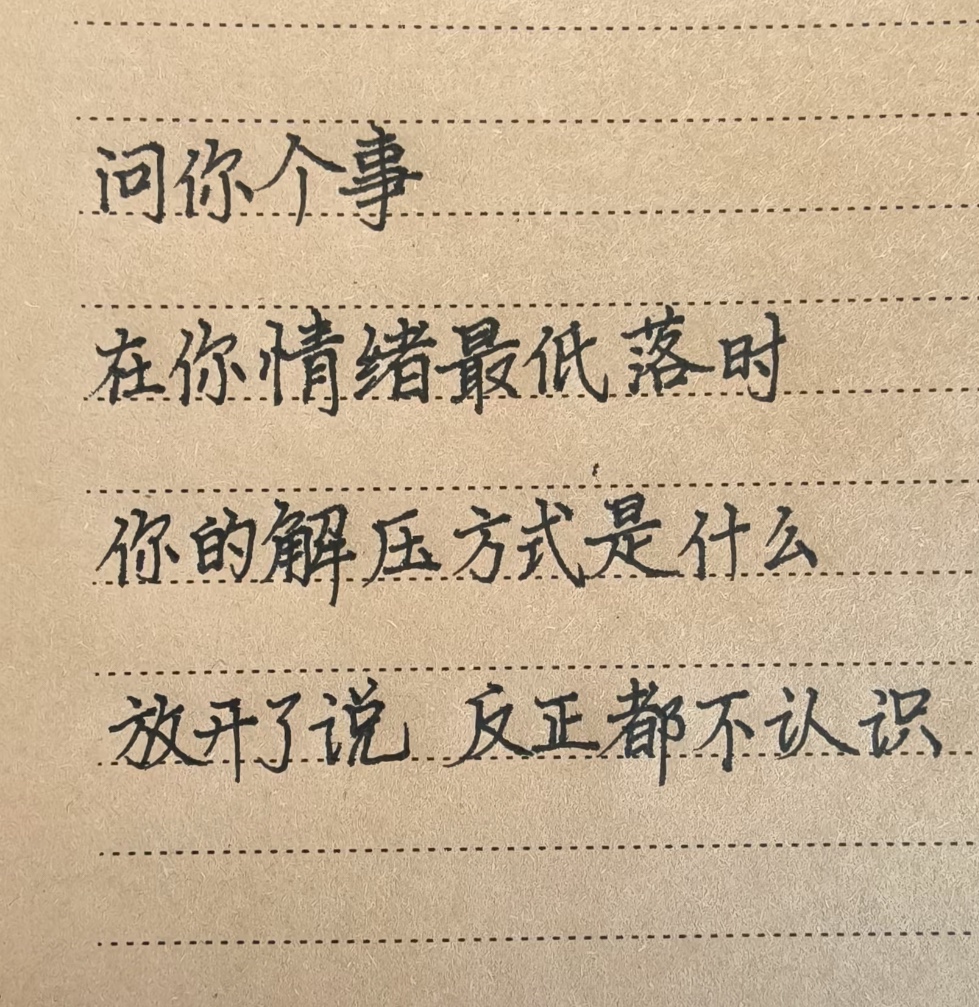 问你个事
在你情绪最低落时
你的解压方式是什么
放开了说 反正都不认识